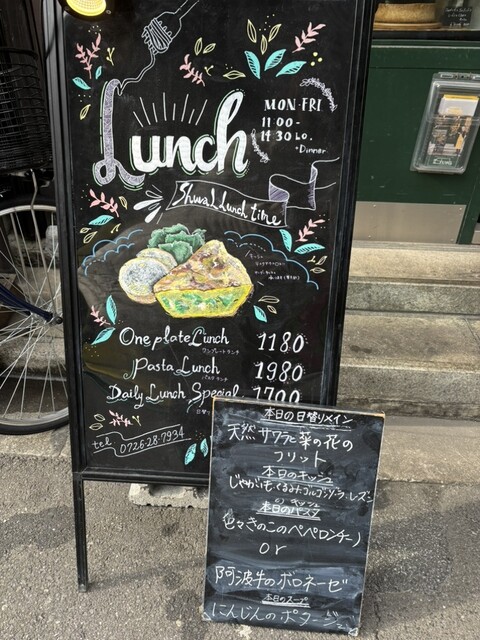 Lunch
MON-FRI
11:00-
14:30 L.O.
+Dinner
Shuval Lunch time
One plate Lunch 1180
ワンプレートランチ
Pasta Lunch 1980
パスタランチ
Daily Lunch Special 1700
tel 0726-28-7934
本日の日替りメイン
天然サワラと菜の花の
フリット
本日のキッシュ
じゃがいも・くるみ・ゴルゴンゾーラ・レーズン
のキッシュ
本日のパスタ
色々きのこのペペロンチーノ
or
阿波牛のボロネーゼ
本日のスープ
にんじんのポタージュ